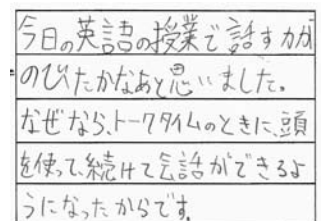 今日の英語の授業で話す力が
のびたかなあと思いました。
なぜなら、トークタイムのときに、頭
を使って、続けて会話ができるよ
うになったからです。